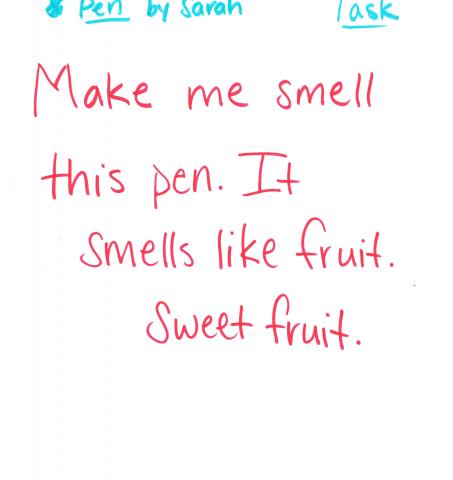 Pen by Sarah Task
Make me smell
this pen. It
smells like fruit.
Sweet fruit.